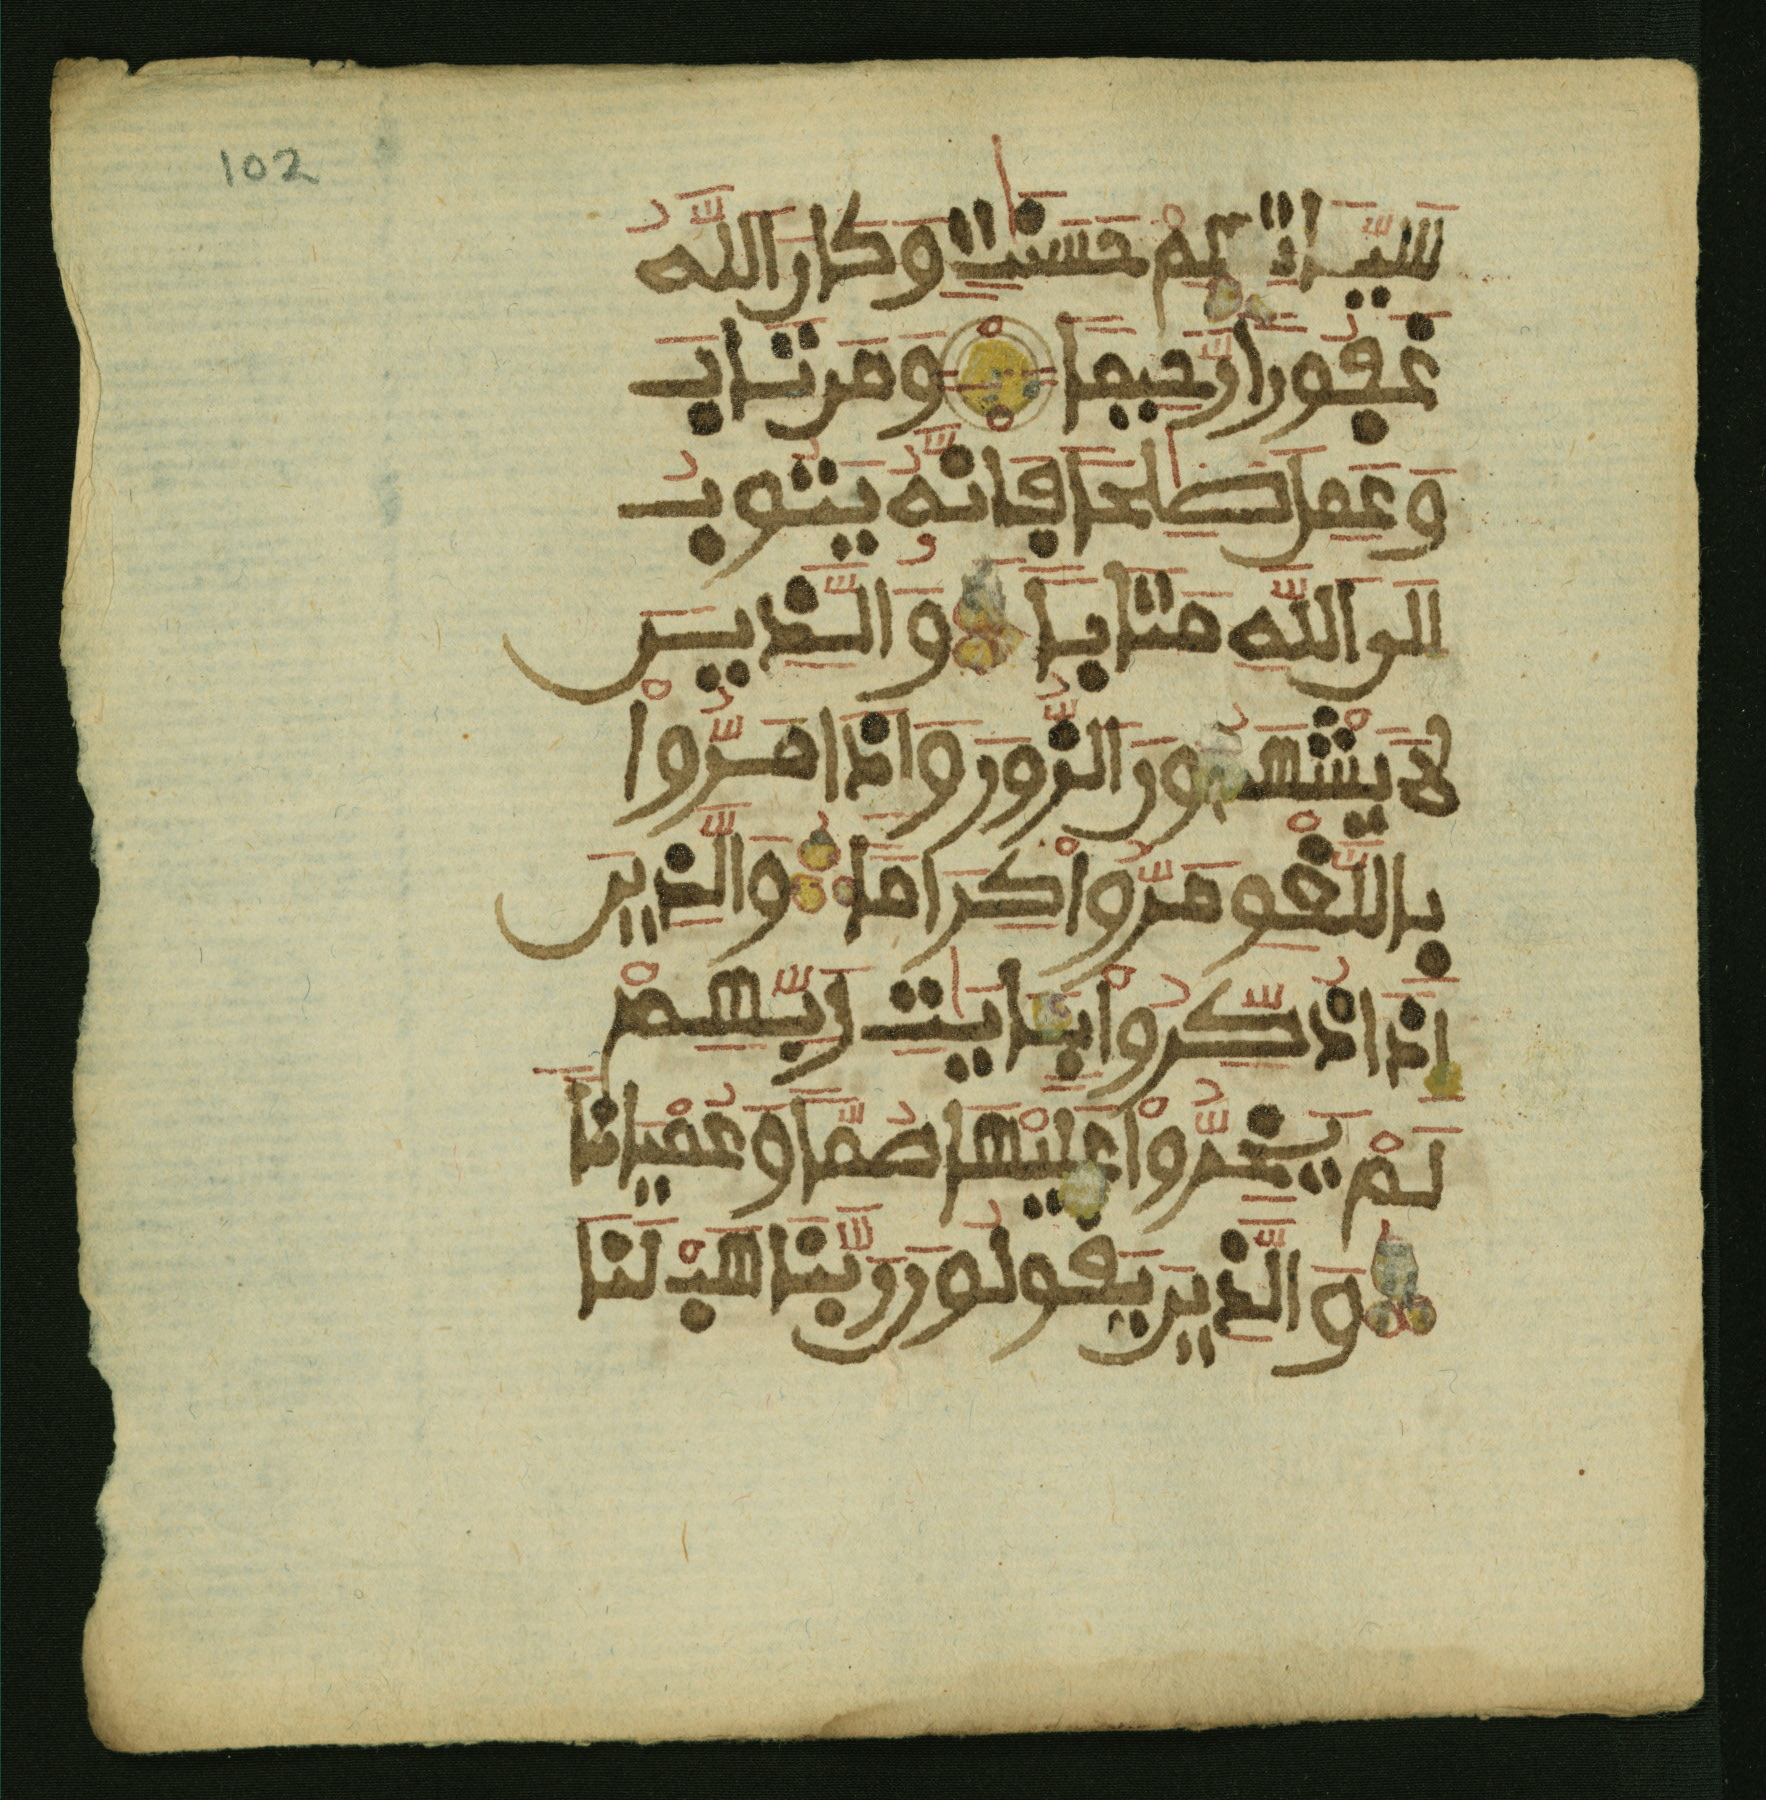 102
سَيِّـَٔاتِهِمْ حَسَنَٰتٍ وَكَانَ ٱللَّهُ
غَفُورًا رَّحِيمًا وَمَن تَابَ
وَعَمِلَ صَٰلِحًا فَإِنَّهُۥ يَتُوبُ
إِلَى ٱللَّهِ مَتَابًا وَٱلَّذِينَ
لَا يَشْهَدُونَ ٱلزُّورَ وَإِذَا مَرُّوا۟
بِٱللَّغْوِ مَرُّوا۟ كِرَامًا وَٱلَّذِينَ
إِذَا ذُكِّرُوا۟ بِـَٔايَٰتِ رَبِّهِمْ
لَمْ يَخِرُّوا۟ عَلَيْهَا صُمًّا وَعُمْيَانًا
وَٱلَّذِينَ يَقُولُونَ رَبَّنَا هَبْ لَنَا